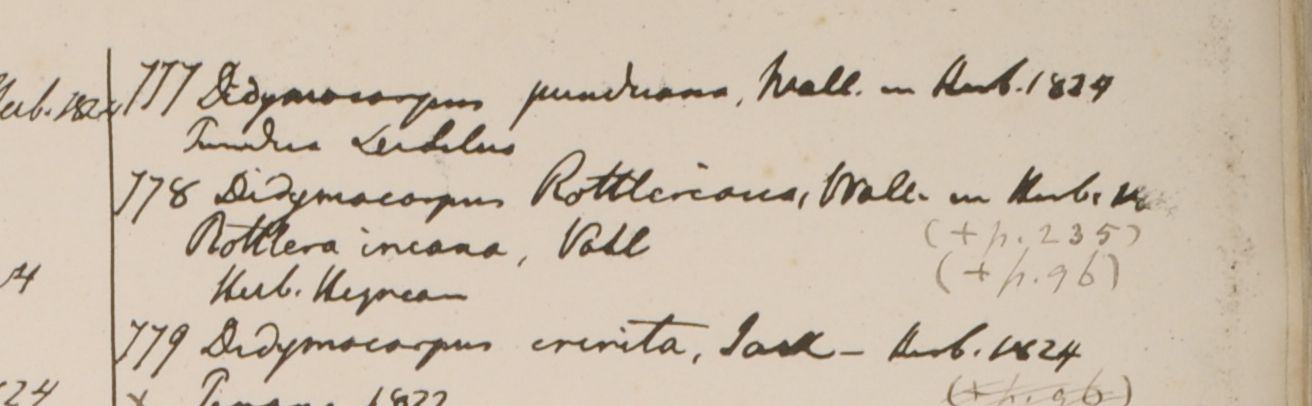 Herb. 1824
777 Didymocarpus punduana, Wall. in Herb. 1824
Pundua
778 Didymocarpus Rottleriana, Wall. in Herb.
Rottlera incana, Vahl
(+ p. 235)
(+ p. 96)
Herb. Heynean
4
779 Didymocarpus crinita, Jack - Herb. 1824
24
x Penang 1822
(+ p. 96)